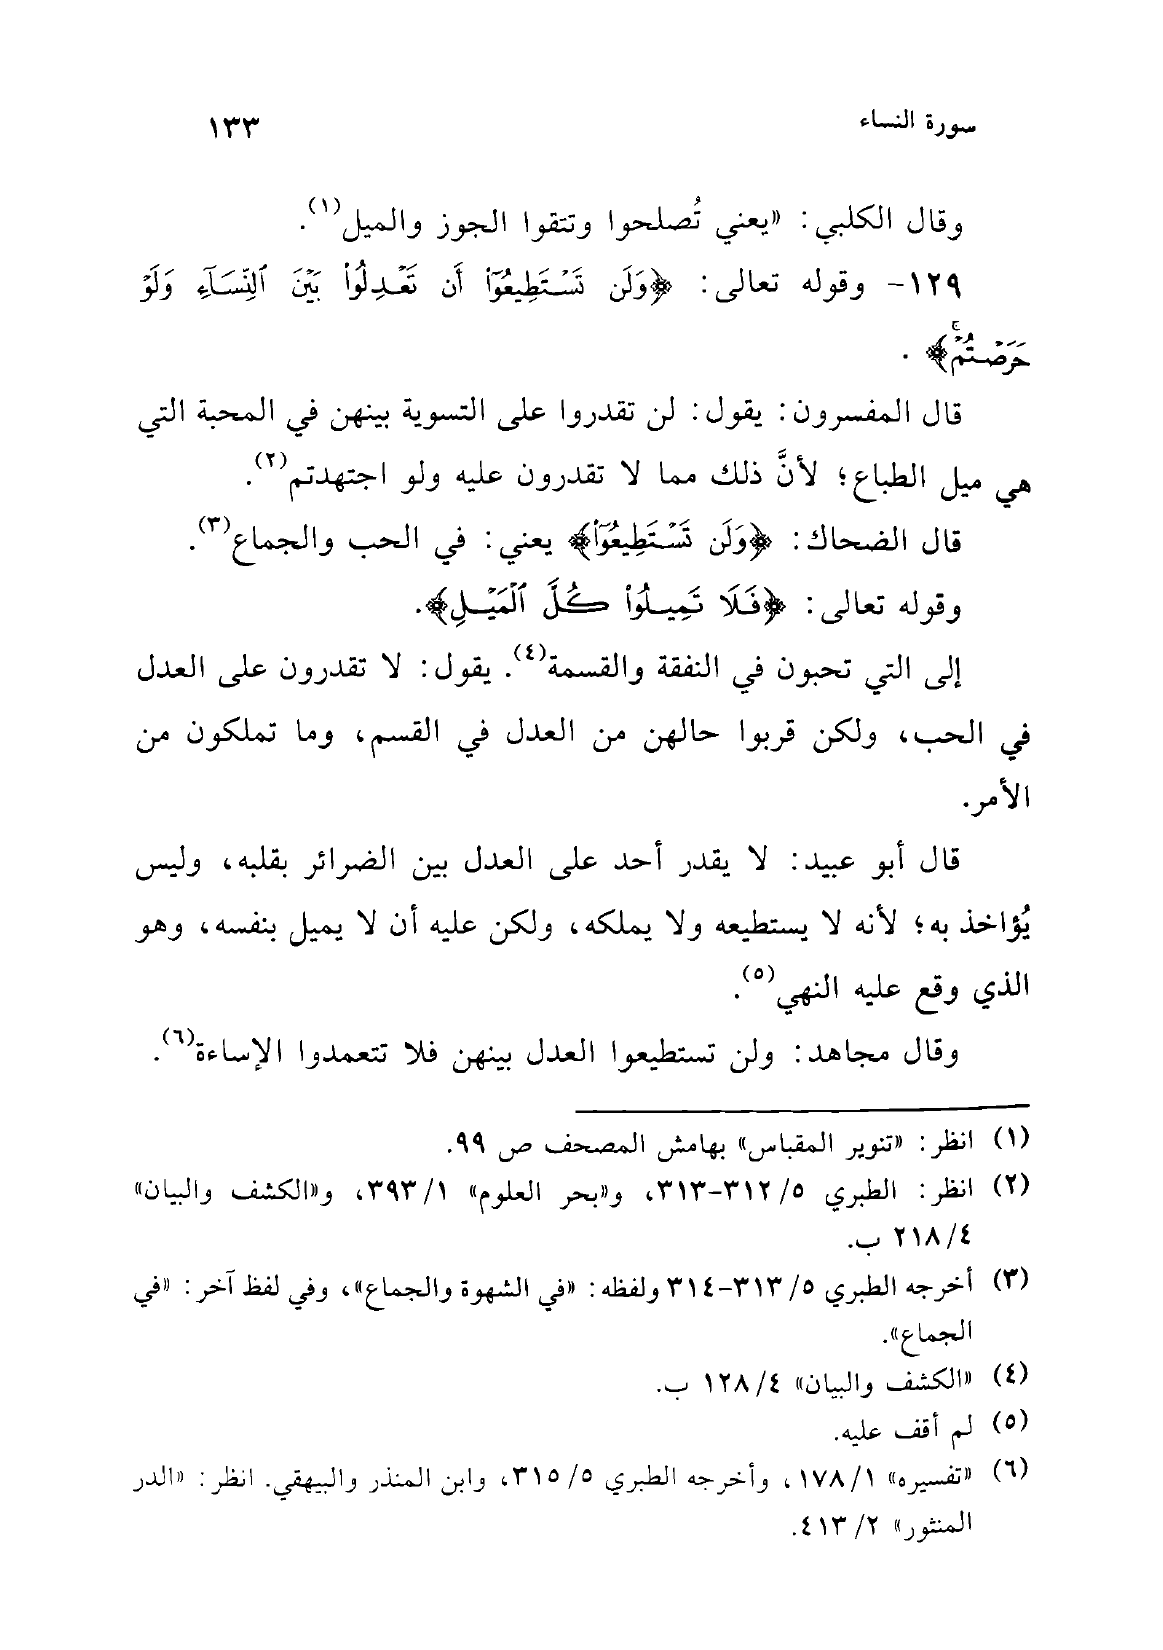 سورة النساء ١٣٣
وقال الكلبي: «يعني تُصلحوا وتتقوا الجوز والميل(١).
١٢٩- وقوله تعالى: ﴿وَلَن تَسْتَطِيعُوٓاْ أَن تَعْدِلُواْ بَيْنَ ٱلنِّسَآءِ وَلَوْ
حَرَصْتُمْۖ﴾ .
قال المفسرون: يقول: لن تقدروا على التسوية بينهن في المحبة التي
هي ميل الطباع؛ لأنَّ ذلك مما لا تقدرون عليه ولو اجتهدتم(٢).
قال الضحاك: ﴿وَلَن تَسْتَطِيعُوٓاْ﴾ يعني: في الحب والجماع(٣).
وقوله تعالى: ﴿فَلَا تَمِيلُواْ كُلَّ ٱلْمَيْلِ﴾.
إلى التي تحبون في النفقة والقسمة(٤). يقول: لا تقدرون على العدل
في الحب، ولكن قربوا حالهن من العدل في القسم، وما تملكون من
الأمر.
قال أبو عبيد: لا يقدر أحد على العدل بين الضرائر بقلبه، وليس
يُؤاخذ به؛ لأنه لا يستطيعه ولا يملكه، ولكن عليه أن لا يميل بنفسه، وهو
الذي وقع عليه النهي(٥).
وقال مجاهد: ولن تستطيعوا العدل بينهن فلا تتعمدوا الإساءة(٦).
(١) انظر: «تنوير المقباس» بهامش المصحف ص ٩٩.
(٢) انظر: الطبري ٥/ ٣١٢-٣١٣، و«بحر العلوم» ١/ ٣٩٣، و«الكشف والبيان»
٤/ ٢١٨ ب.
(٣) أخرجه الطبري ٥/ ٣١٣-٣١٤ ولفظه: «في الشهوة والجماع»، وفي لفظ آخر: «في
الجماع».
(٤) «الكشف والبيان» ٤/ ١٢٨ ب.
(٥) لم أقف عليه.
(٦) «تفسيره» ١/ ١٧٨، وأخرجه الطبري ٥/ ٣١٥، وابن المنذر والبيهقي. انظر: «الدر
المنثور» ٢/ ٤١٣.